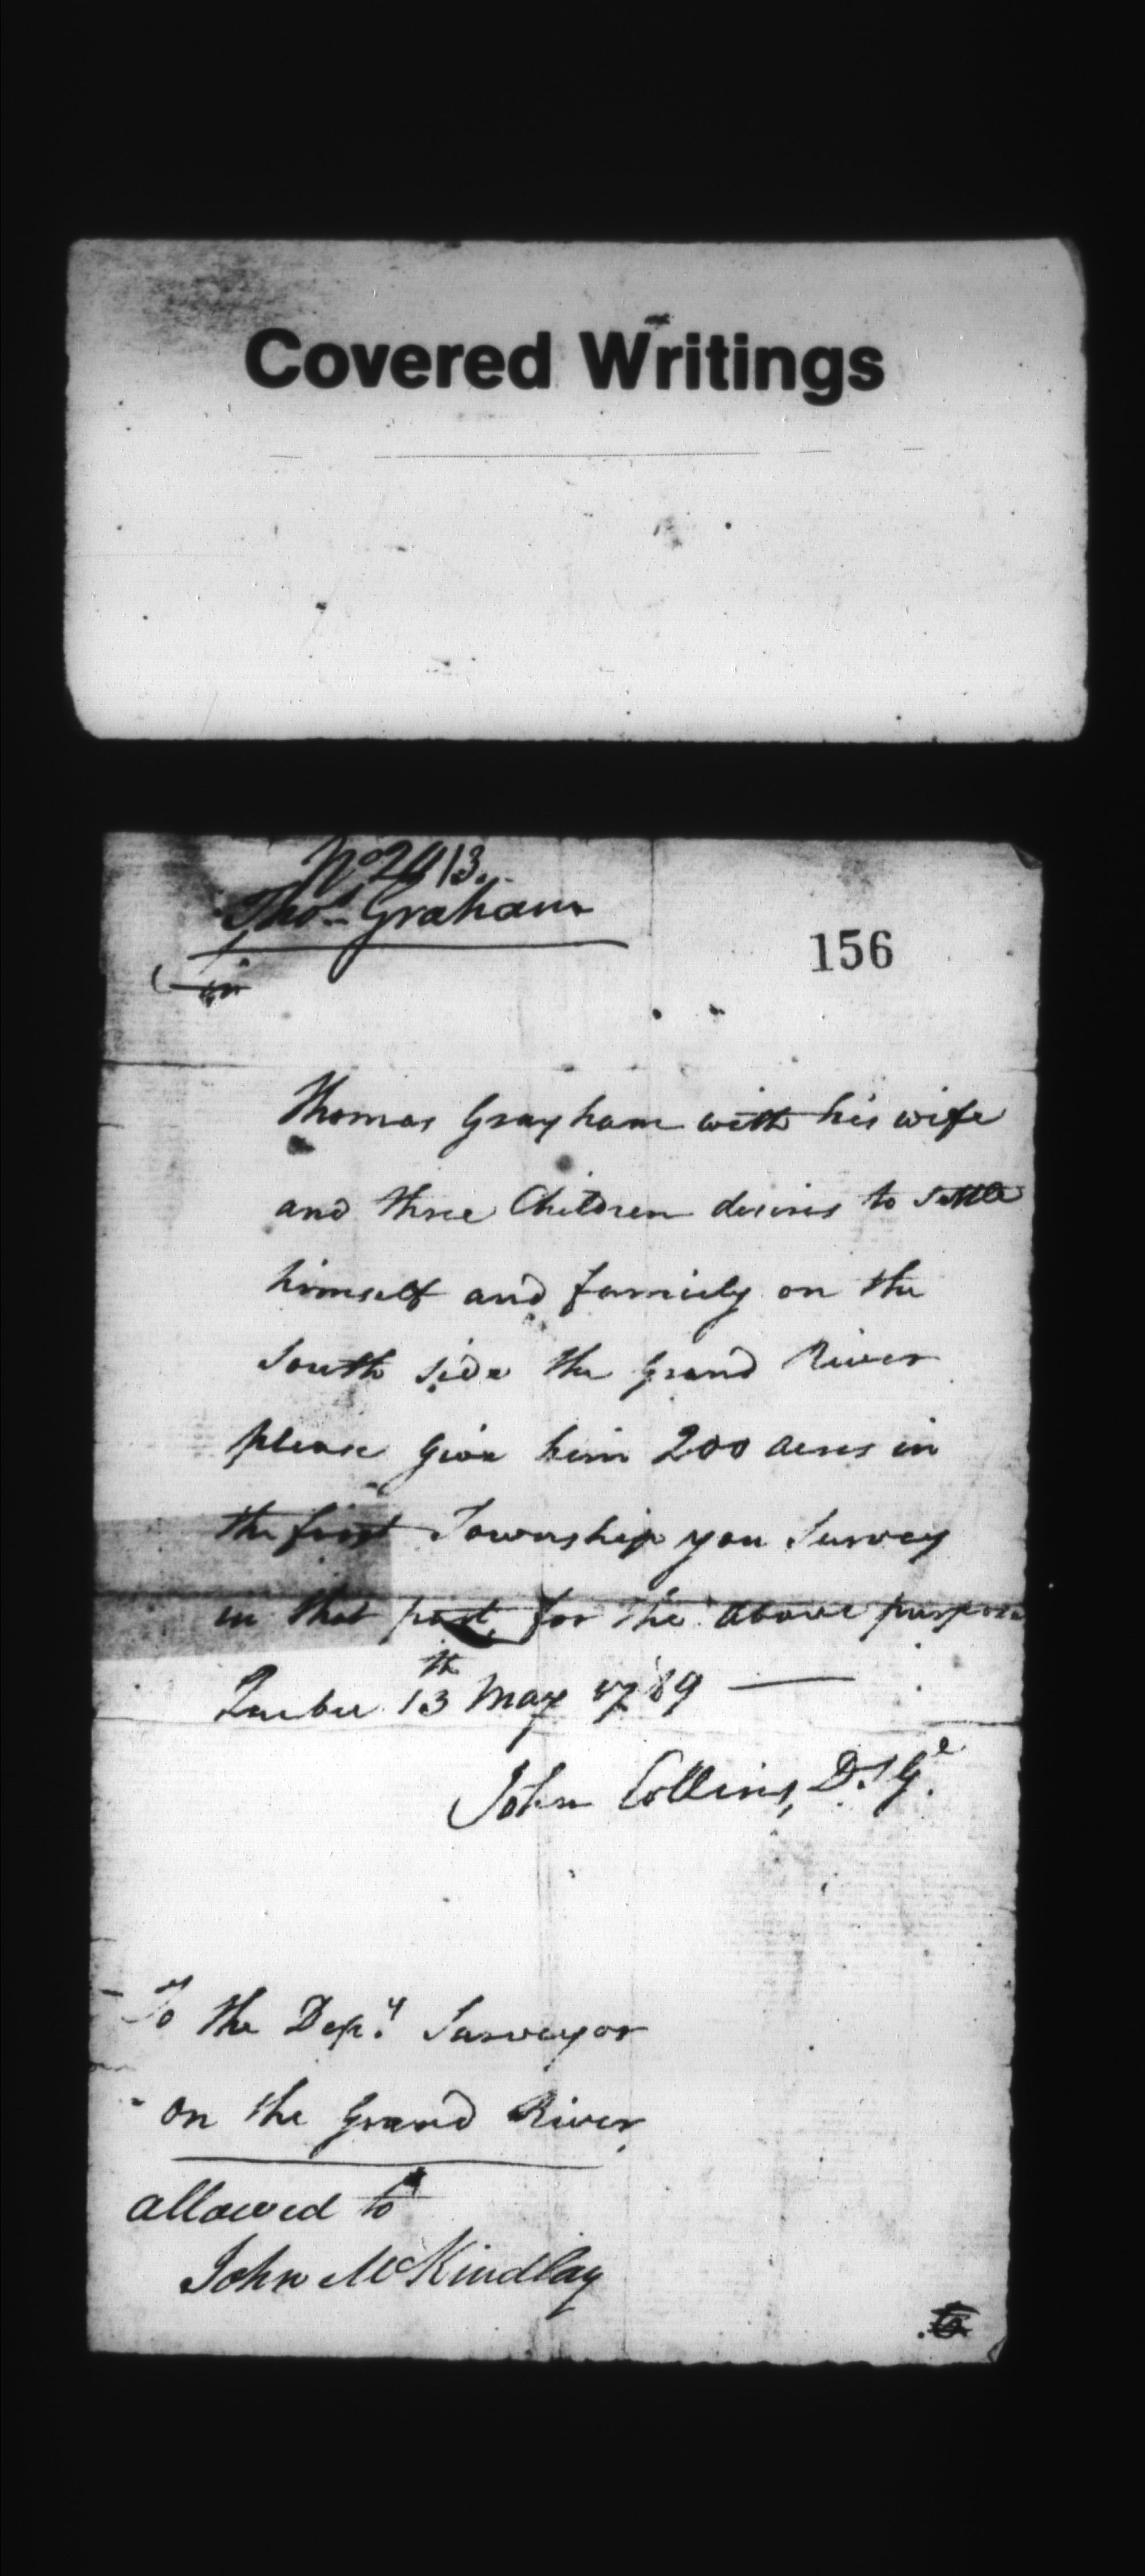 Covered Writings
No 2413.
Thos. Graham
156
in
Thomas Grayham with his wife
and three Children desires to settle
himself and family on the
South side the Grand River
please give him 200 acres in
the first Township you Survey
in that part, for the above purpose
Quebec 13th May 1789 —
John Collins, D.S.Gl.
To the Depy. Surveyor
on the Grand River,
allowed to
John McKindlay